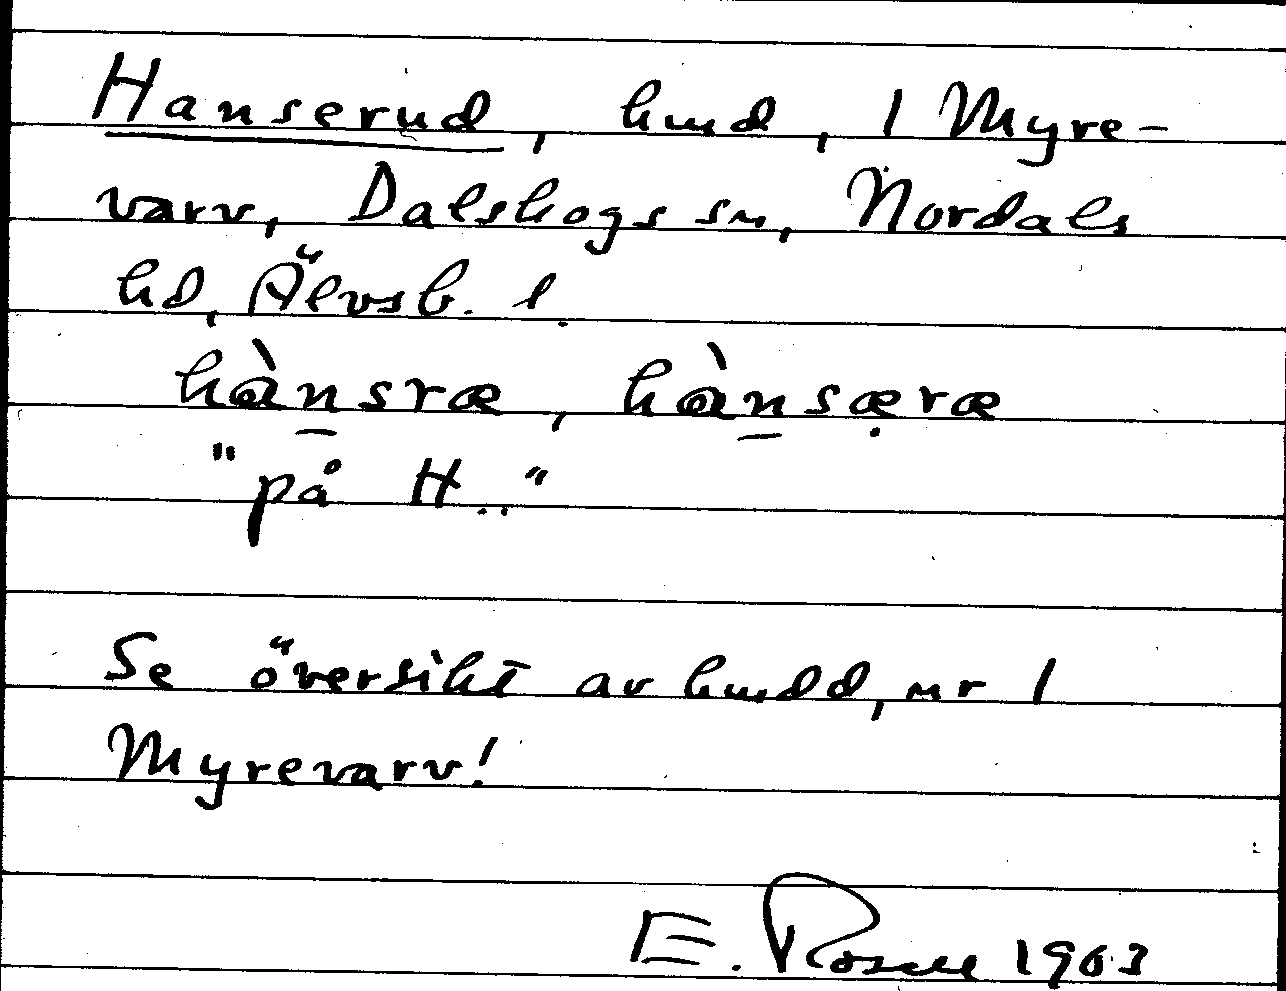 Hanserud, hmd, 1 Myre-
varv, Dalskogs sn, Nordals
hd, Älvsb. l.
hànsræ, hànsæ̣ræ
"på H.."
Se översikt av hmdd, nr 1
Myrevarv!
E. Rosell 1963